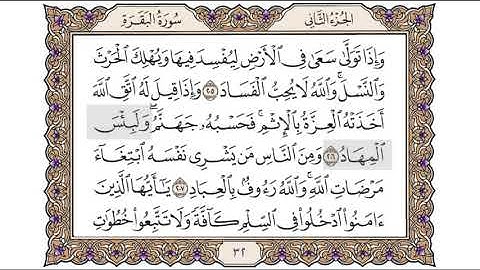 الجزء الثاني
سورة البقرة
وَإِذَا تَوَلَّىٰ سَعَىٰ فِي الْأَرْضِ لِيُفْسِدَ فِيهَا وَيُهْلِكَ الْحَرْثَ
وَالنَّسْلَ ۗ وَاللَّهُ لَا يُحِبُّ الْفَسَادَ ٢٠٥ وَإِذَا قِيلَ لَهُ اتَّقِ اللَّهَ
أَخَذَتْهُ الْعِزَّةُ بِالْإِثْمِ ۚ فَحَسْبُهُ جَهَنَّمُ ۚ وَلَبِئْسَ
الْمِهَادُ ٢٠٦ وَمِنَ النَّاسِ مَن يَشْرِي نَفْسَهُ ابْتِغَاءَ
مَرْضَاتِ اللَّهِ ۗ وَاللَّهُ رَءُوفٌ بِالْعِبَادِ ٢٠٧ يَا أَيُّهَا الَّذِينَ
ءَامَنُوا ادْخُلُوا فِي السِّلْمِ كَافَّةً وَلَا تَتَّبِعُوا خُطُوَاتِ
٣٢